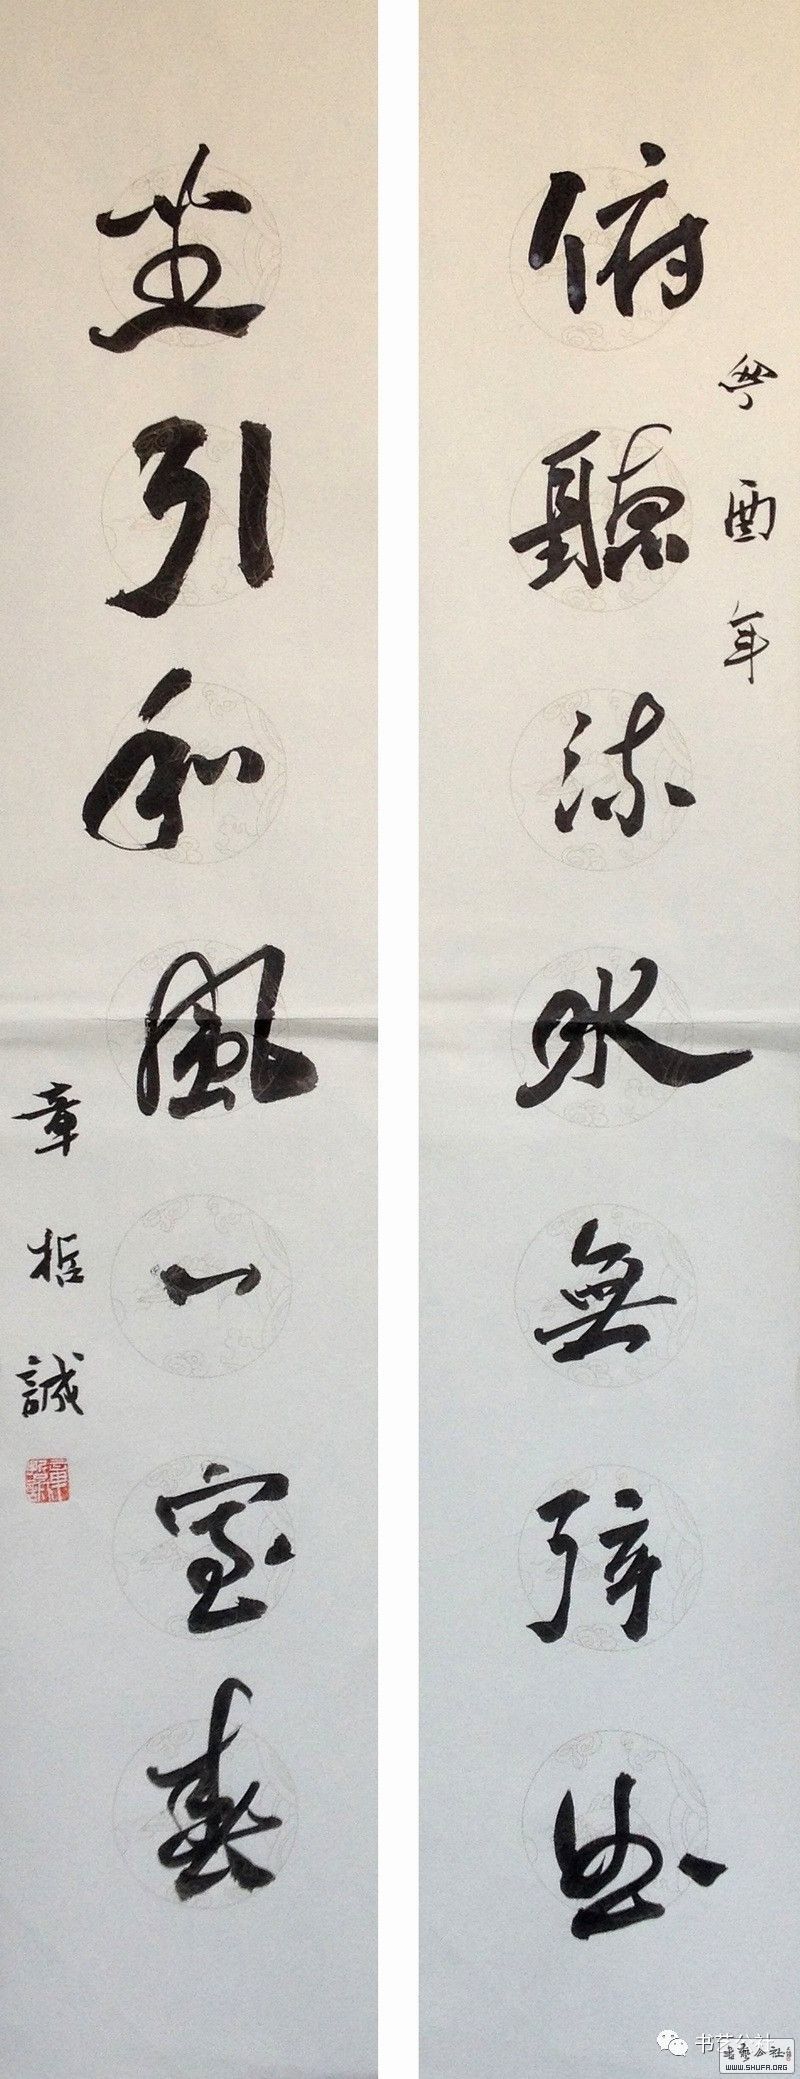 俯聽流水無弦曲
酉年
坐引和風一室春
章誠
书艺公社
書藝公社
WWW.SHUFA.ORG